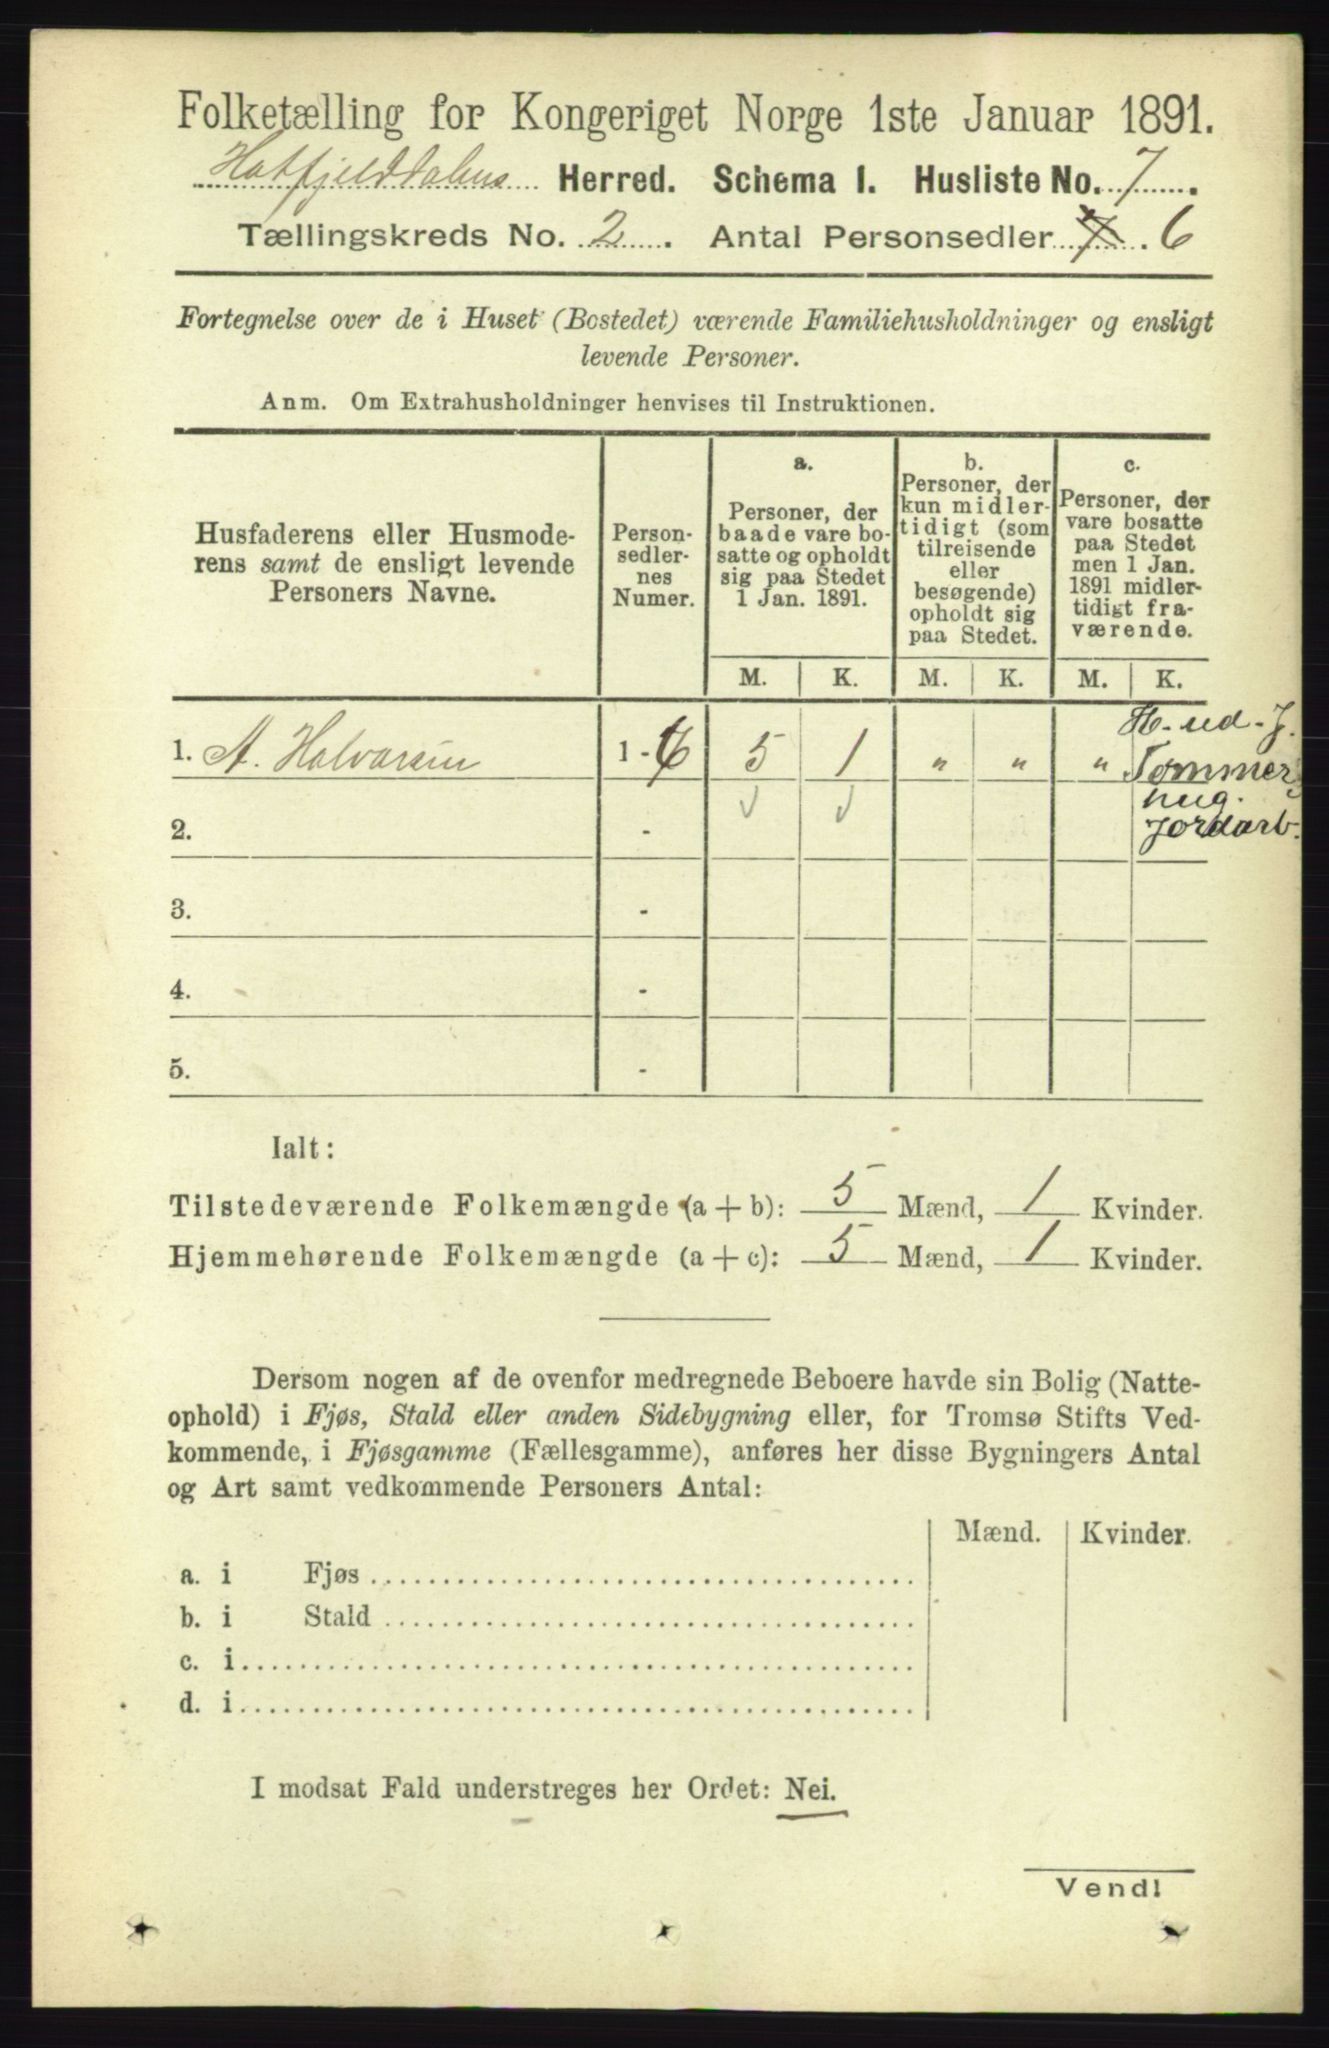 Folketælling for Kongeriget Norge 1ste Januar 1891.
Hatfjelddalens Herred. Schema I. Husliste No. 7.
Tællingskreds No. 2. Antal Personsedler 7. 6
Fortegnelse over de i Huset (Bostedet) værende Familiehusholdninger og ensligt
levende Personer.
Anm. Om Extrahusholdninger henvises til Instruktionen.
Husfaderens eller Husmode-
rens samt de ensligt levende
Personers Navne.
Person-
sedler-
nes
Numer.
a.
Personer, der
baade vare bo-
satte og opholdt
sig paa Stedet
1 Jan. 1891.
b.
Personer, der
kun midler-
tidigt (som
tilreisende
eller
besøgende)
opholdt sig
paa Stedet.
c.
Personer, der
vare bosatte
paa Stedet
men 1 Jan.
1891 midler-
tidigt fra-
værende.
M. K. M. K. M. K.
1. A. Halvarsen 1 - 6 5 1 " " "
H. ud - J.
Tommer
hug.
Jordarb.
2. -
3. -
4. -
5. -
Ialt:
Tilstedeværende Folkemængde (a + b): 5 Mænd, 1 Kvinder.
Hjemmehørende Folkemængde (a + c): 5 Mænd, 1 Kvinder.
Dersom nogen af de ovenfor medregnede Beboere havde sin Bolig (Natte-
ophold) i Fjøs, Stald eller anden Sidebygning eller, for Tromsø Stifts Ved-
kommende, i Fjøsgamme (Fællesgamme), anføres her disse Bygningers Antal
og Art samt vedkommende Personers Antal:
Mænd. Kvinder.
a. i Fjøs
b. i Stald
c. i
d. i
I modsat Fald understreges her Ordet: Nei.
Vendl